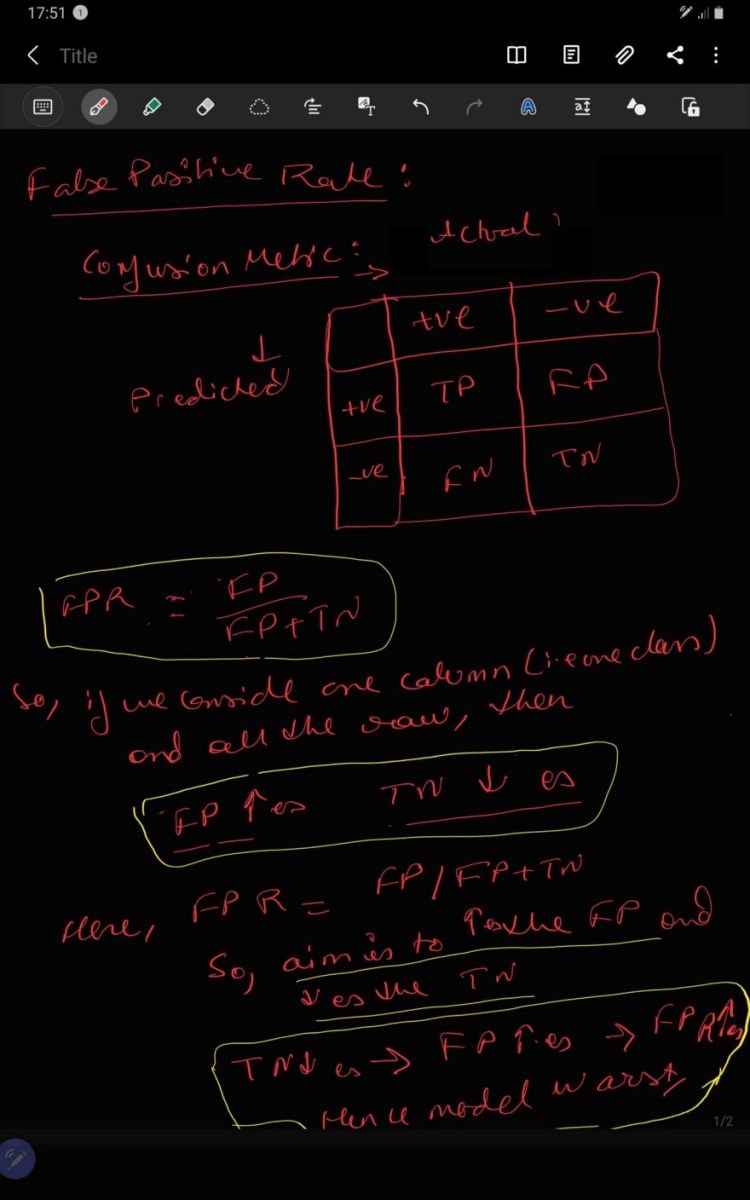 17:51 1
Title
False Positive Rate :
Confusion Metric : →
Actual
↓
Predicted
+ve -ve
+ve TP FP
-ve FN TN
FPR = FP
FP+TN
So, if we conside one calumn (i.e one class)
and all the raw, then
FP ↑es TN ↓ es
Here, FPR = FP/FP+TN
So, aim is to ↑es the FP and
↓es the TN
TN↓ es → FP ↑es → FPR↑es
Hence model warst
1/2